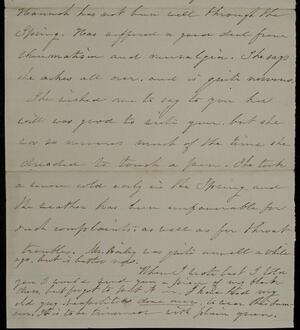 Hannah has not been well through the
Spring. Has suffered a good deal from
rheumatism and neuralgia. She says
she aches all over, and is quite nervous.
She wished me to say to you her
will was good to write you. but she
was so nervous much of the time she
dreaded to touch a pen. She took
a severe cold early in the Spring and
the weather has been unfavourable for
such complaints, as well as for throat
troubles. Mr. was quite unwell a while
ago, but is better now.
When I wrote last I told
you I would send you a piece of my black
dress, but forgot to put it in. I have had my
old gray done over, to wear the
It is to be trimmed with plain green.